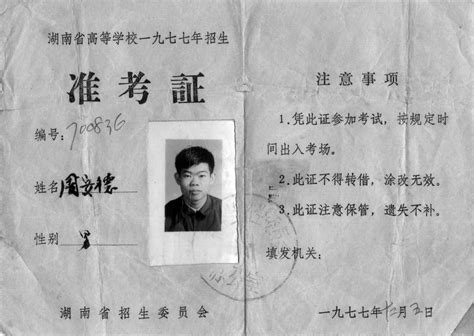 湖南省高等学校一九七七年招生
准考证
编号:700836
姓名 周安德
性别 男
湖南省招生委员会
注意事项
1.凭此证参加考试，按规定时
间出入考场。
2.此证不得转借，涂改无效。
3.此证注意保管，遗失不补。
填发机关:
一九七七年十二月五日